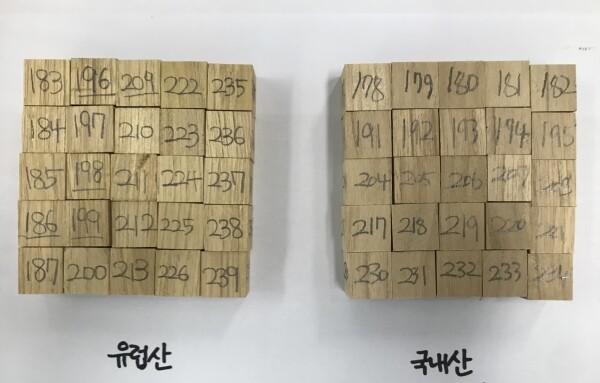 183 196 209 222 235
184 197 210 223 236
185 198 211 224 237
186 199 212 225 238
187 200 213 226 239
유럽산
178 179 180 181 182
191 192 193 194 195
204 205 206 207 208
217 218 219 220 221
230 231 232 233 234
국내산